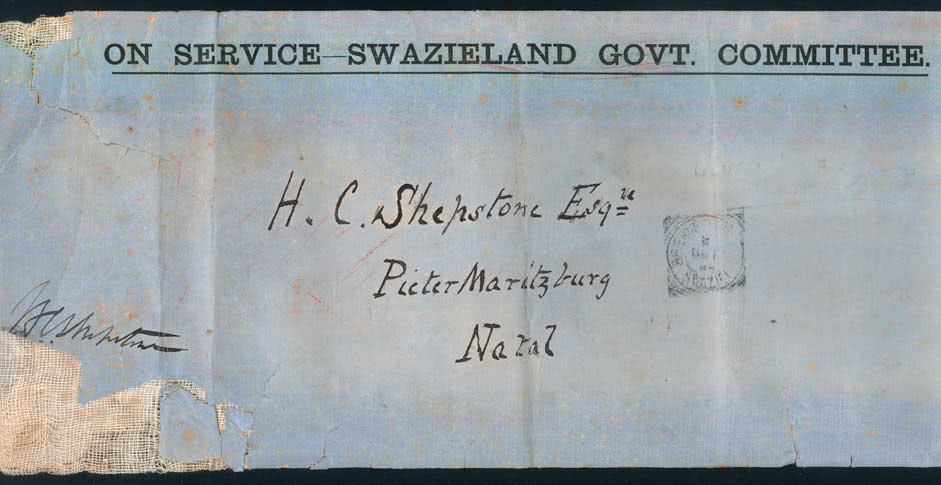 ON SERVICE—SWAZIELAND GOVT. COMMITTEE.
H. C. Shepstone Esqre
PieterMaritzburg
Natal
H C Shepstone